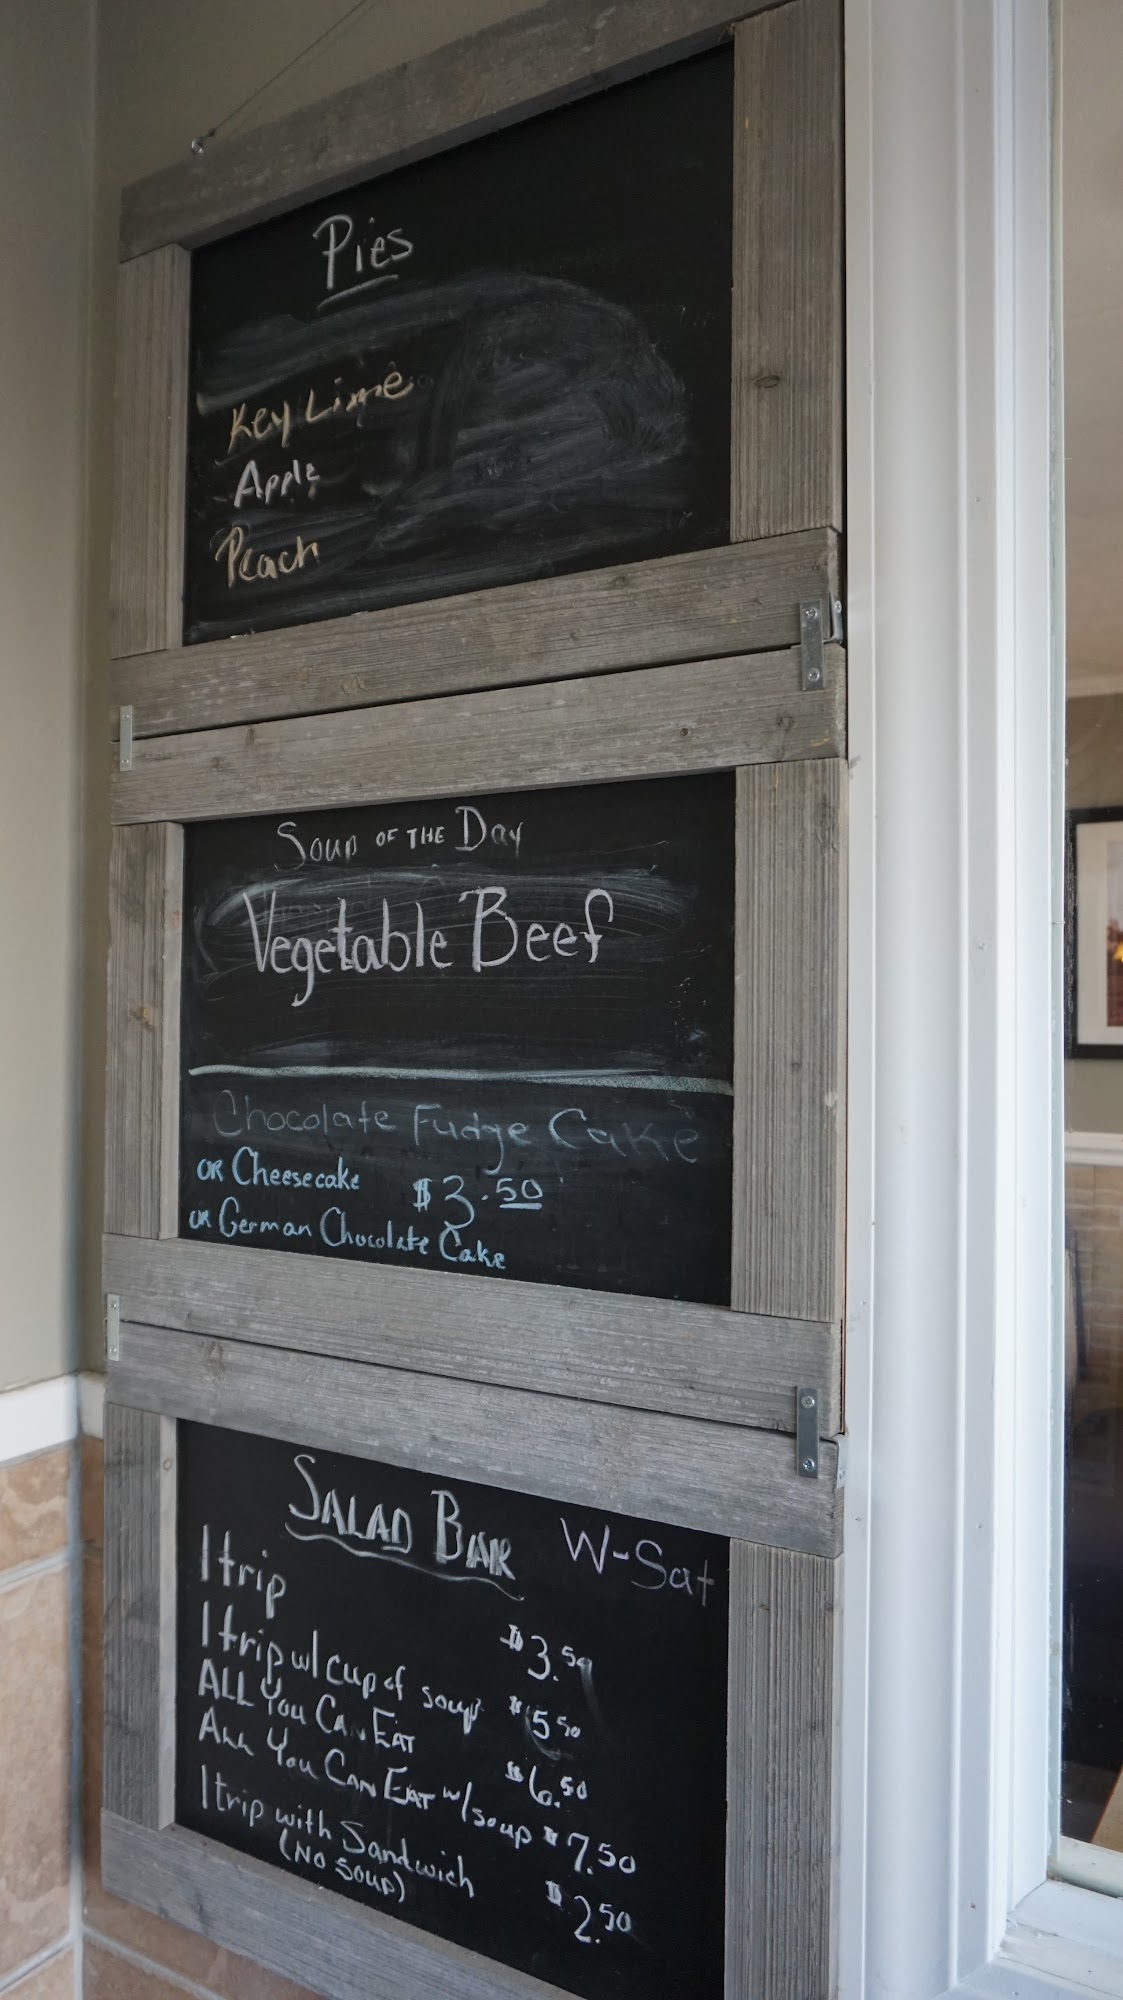 Pies
Key Lime
Apple
Peach
Soup OF THE Day
Vegetable Beef
Chocolate Fudge Cake
OR Cheesecake $3.50
OR German Chocolate Cake
SALAD BAR W-Sat
1 trip $3.50
1 trip w/ cup of soup $5.50
ALL You CAN EAT $6.50
ALL You CAN EAT w/ soup $7.50
1 trip with Sandwich $2.50
(NO SOUP)